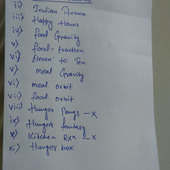 ii) Indian Aroma
iii) Happy Hours
iv) food Gravity
v) food-fraction
vi) Eleven to Ten
v) meal Gravity
vi) meal orbit
vii) food orbit
viii) Hunger Pangs -x
ix) Hungers fantasy
x) Kitchen Rxn -x
xi) Hunger box